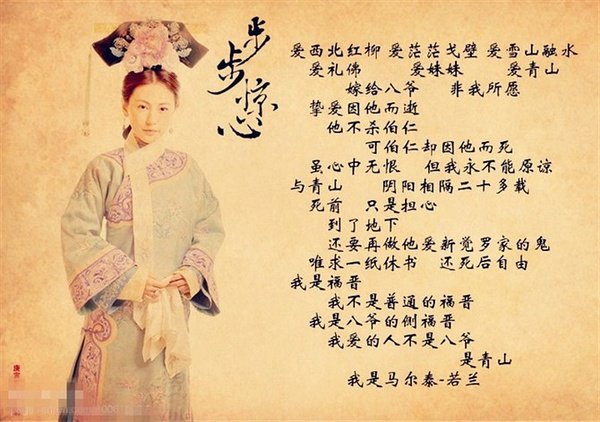 步步惊心
爱西北红柳 爱茫茫戈壁 爱雪山融水
爱礼佛 爱妹妹 爱青山
嫁给八爷 非我所愿
挚爱因他而逝
他不杀伯仁
可伯仁却因他而死
虽心中无恨 但我永不能原谅
与青山 阴阳相隔二十多载
死前 只是担心
到了地下
还要再做他爱新觉罗家的鬼
唯求一纸休书 还死后自由
我是福晋
我不是普通的福晋
我是八爷的侧福晋
我爱的人不是八爷
是青山
我是马尔泰-若兰